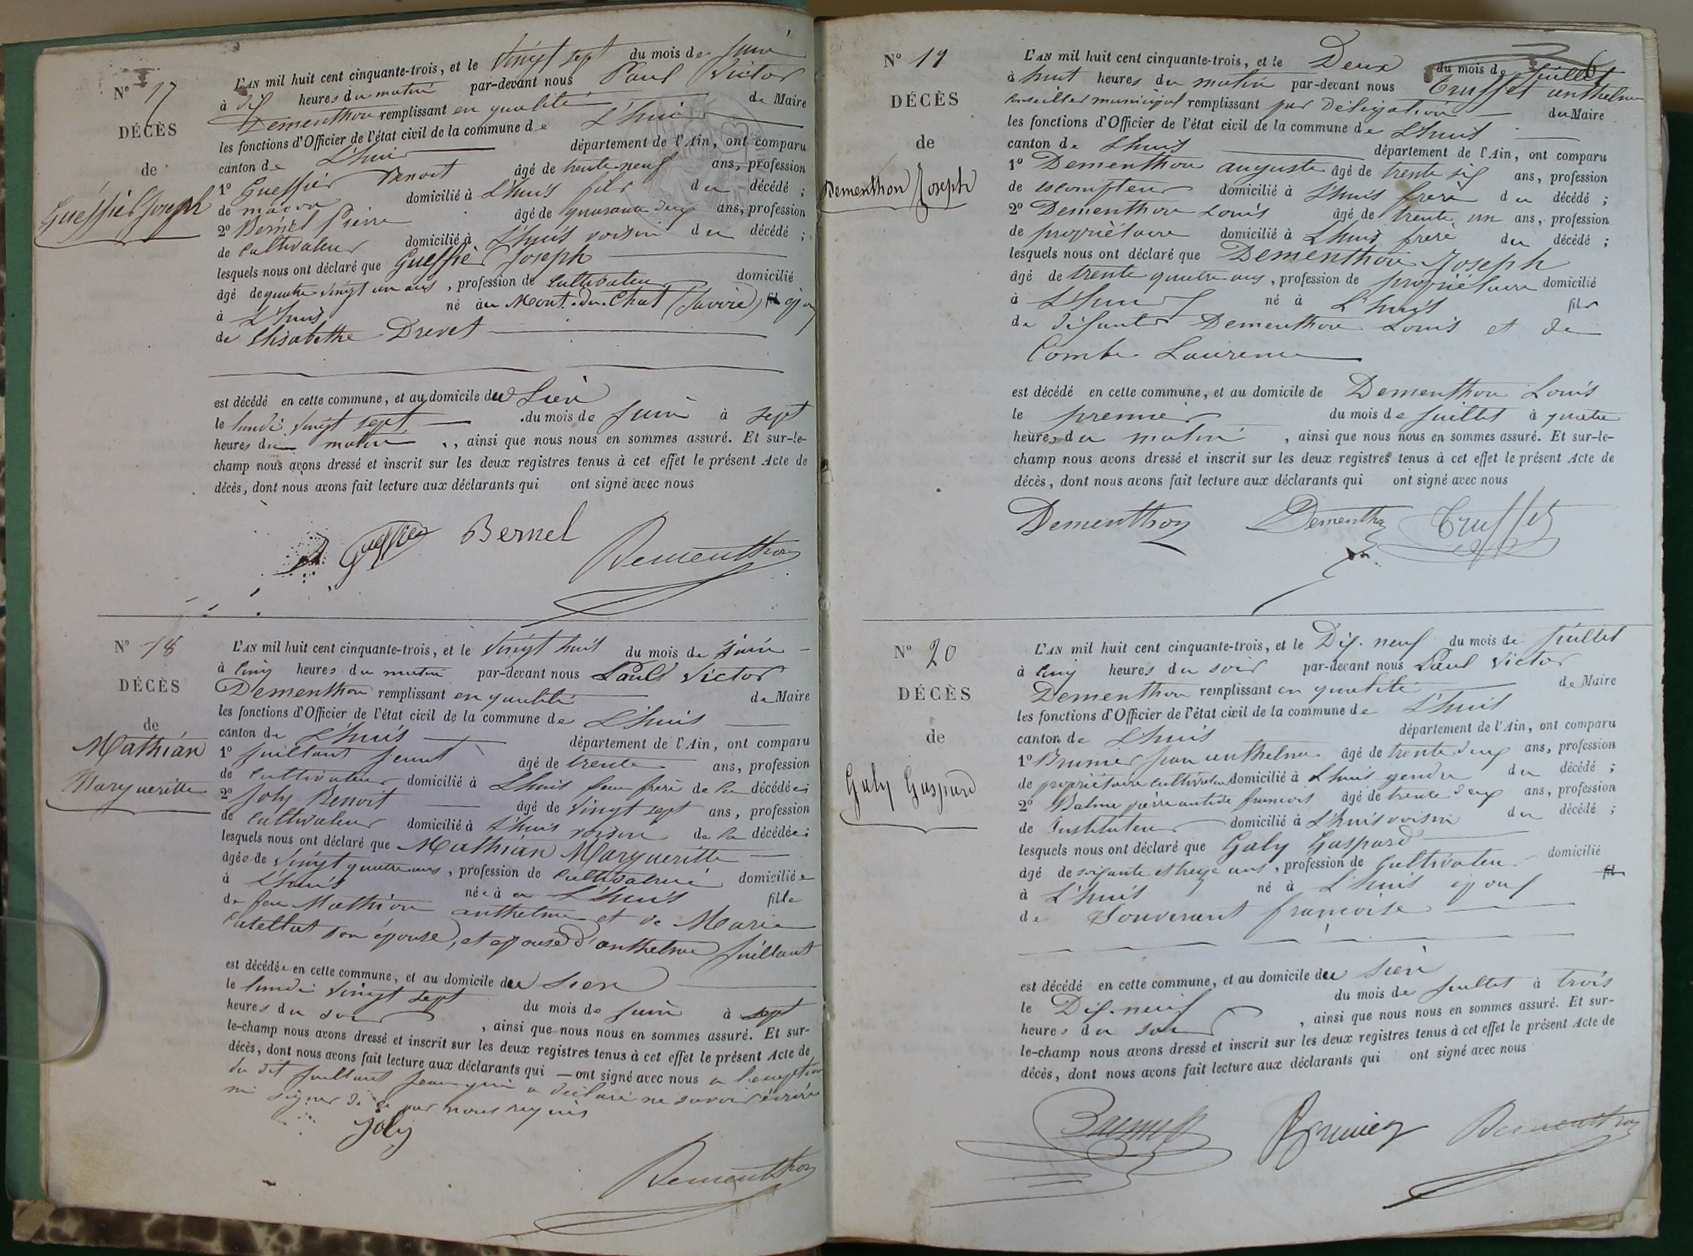 N° 17
DÉCÈS
de
Gueffier Joseph
L'AN mil huit cent cinquante-trois, et le vingt sept du mois de Juin
à dix heures du matin par-devant nous Paul Victor
Dementhon remplissant en qualité de Maire
les fonctions d'Officier de l'état civil de la commune de L'huis
canton de L'huis département de l'Ain, ont comparu
1° Gueffier Benoit âgé de trente neuf ans, profession
de maçon domicilié à L'huis fils du décédé ;
2° Bernel Pierre âgé de quarante deux ans, profession
de Cultivateur domicilié à L'huis voisin du décédé ;
lesquels nous ont déclaré que Gueffier Joseph
âgé de quatre vingt un ans, profession de Cultivateur domicilié
à L'huis né au Mont-du-Chat (Savoie) époux
de Elisabethe Drevet
est décédé en cette commune, et au domicile du Sien
le lundi vingt sept du mois de Juin à sept
heures du matin, ainsi que nous nous en sommes assuré. Et sur-le-
champ nous avons dressé et inscrit sur les deux registres tenus à cet effet le présent Acte de
décès, dont nous avons fait lecture aux déclarants qui ont signé avec nous
Gueffier Bernel
Dementhon
N° 18
DÉCÈS
de
Mathian
Margueritte
L'AN mil huit cent cinquante-trois, et le vingt huit du mois de juin
à cinq heures du matin par-devant nous Paul Victor
Dementhon remplissant en qualité de Maire
les fonctions d'Officier de l'état civil de la commune de L'huis
canton de L'huis département de l'Ain, ont comparu
1° Juillant âgé de trente ans, profession
de Cultivateur domicilié à L'huis beau frère de la décédée ;
2° Joly Benoit âgé de vingt sept ans, profession
de Cultivateur domicilié à L'huis voisin de la décédée ;
lesquels nous ont déclaré que Mathian Margueritte
âgée de vingt quatre ans, profession de Cultivatrice domiciliée
à L'huis née à en L'huis fille
de feu Mathian anthelme et de Marie
son épouse, et épouse d'anthelme Juillant
est décédée en cette commune, et au domicile du Sien
le lundi vingt sept du mois de Juin à sept
heures du soir, ainsi que nous nous en sommes assuré. Et sur-
le-champ nous avons dressé et inscrit sur les deux registres tenus à cet effet le présent Acte de
décès, dont nous avons fait lecture aux déclarants qui — ont signé avec nous a l'exception
du dit Juillant Jean qui a déclaré ne savoir écrire
ni signer de ce par nous requis
Joly
Dementhon
6
N° 19
DÉCÈS
de
Dementhon Joseph
L'AN mil huit cent cinquante-trois, et le Deux du mois de Juillet
à huit heures du matin par-devant nous Truffet anthelme
Conseiller municipal remplissant par délégation du Maire
les fonctions d'Officier de l'état civil de la commune de L'huis
canton de L'huis département de l'Ain, ont comparu
1° Dementhon auguste âgé de trente six ans, profession
de escompteur domicilié à L'huis frère du décédé ;
2° Dementhon Louis âgé de trente un ans, profession
de propriétaire domicilié à L'huis frère du décédé ;
lesquels nous ont déclaré que Dementhon Joseph
âgé de trente quatre ans, profession de propriétaire domicilié
à L'huis né à L'huis fils
de défunts Dementhon Louis et de
Combe Laurence
est décédé en cette commune, et au domicile de Dementhon Louis
le premier du mois de Juillet à quatre
heures du matin, ainsi que nous nous en sommes assuré. Et sur-le-
champ nous avons dressé et inscrit sur les deux registres tenus à cet effet le présent Acte de
décès, dont nous avons fait lecture aux déclarants qui ont signé avec nous
Dementhon Dementhon Truffet
N° 20
DÉCÈS
de
Galy Gaspard
L'AN mil huit cent cinquante-trois, et le Dix-neuf du mois de Juillet
à cinq heures du soir par-devant nous Paul Victor
Dementhon remplissant en qualité de Maire
les fonctions d'Officier de l'état civil de la commune de L'huis
canton de L'huis département de l'Ain, ont comparu
1° Brunier Jean anthelme âgé de trente deux ans, profession
de propriétaire cultivateur domicilié à L'huis gendre du décédé ;
2° pierre françois âgé de trente deux ans, profession
de Instituteur domicilié à L'huis voisin du décédé ;
lesquels nous ont déclaré que Galy Gaspard
âgé de soixante et treize ans, profession de Cultivateur domicilié
à L'huis né à L'huis époux
de Souverant françoise
est décédé en cette commune, et au domicile du Sien
le Dix-neuf du mois de Juillet à trois
heures du soir, ainsi que nous nous en sommes assuré. Et sur-
le-champ nous avons dressé et inscrit sur les deux registres tenus à cet effet le présent Acte de
décès, dont nous avons fait lecture aux déclarants qui ont signé avec nous
Brunier Dementhon